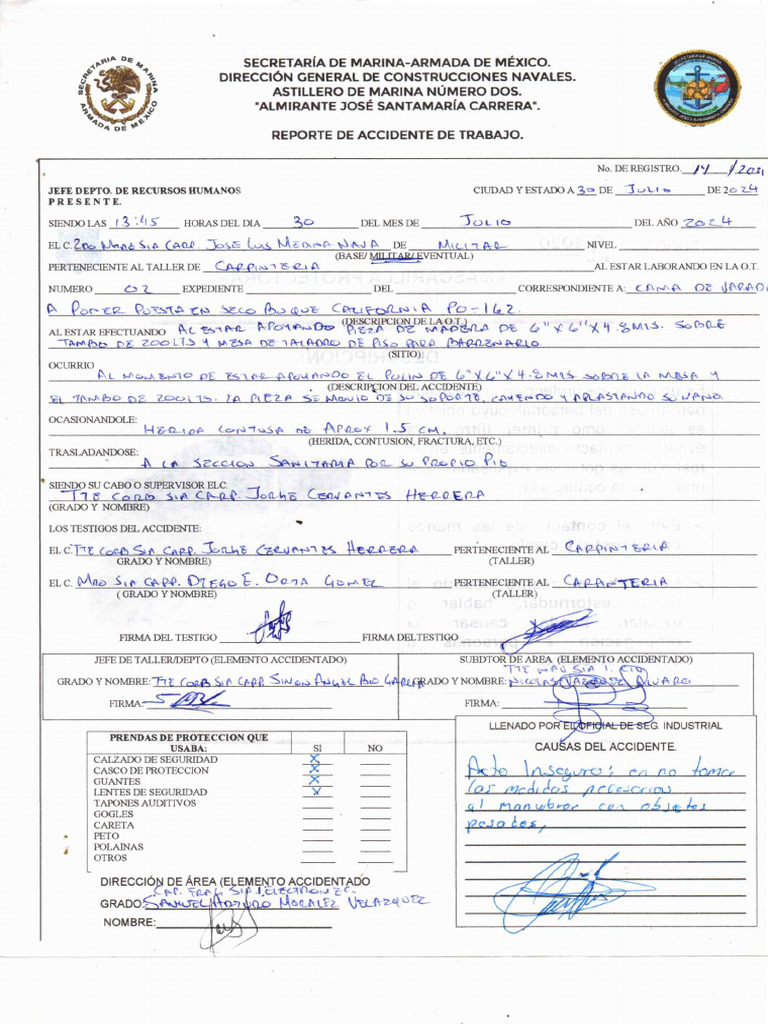 SECRETARIA DE MARINA
ARMADA DE MEXICO
SECRETARÍA DE MARINA-ARMADA DE MÉXICO.
DIRECCIÓN GENERAL DE CONSTRUCCIONES NAVALES.
ASTILLERO DE MARINA NÚMERO DOS.
"ALMIRANTE JOSÉ SANTAMARÍA CARRERA".
REPORTE DE ACCIDENTE DE TRABAJO.
No. DE REGISTRO. 14 /2024
JEFE DEPTO. DE RECURSOS HUMANOS
P R E S E N T E.
CIUDAD Y ESTADO A 30 DE JULIO DE 2024
SIENDO LAS 13:45 HORAS DEL DIA 30 DEL MES DE JULIO DEL AÑO 2024
EL C. 2DO MAESIA CARP. JOSE LUIS MEDINA NAVA DE MILITAR NIVEL
(BASE/ MILITAR/ EVENTUAL)
PERTENECIENTE AL TALLER DE CARPINTERIA AL ESTAR LABORANDO EN LA O.T.
NUMERO 02 EXPEDIENTE DEL CORRESPONDIENTE A: CAMA DE VARADA
A PONER PUESTA EN SECO BUQUE CALIFORNIA PO-162.
(DESCRIPCION DE LA O.T.)
AL ESTAR EFECTUANDO AL ESTAR APOYANDO PIEZA DE MADERA DE 6"X6"X4.8MTS. SOBRE
TAMBO DE 200LTS Y MESA DE TALADRO DE PISO PARA BARRENARLO
(SITIO)
OCURRIO
AL MOMENTO DE ESTAR APOYANDO EL POLIN DE 6"X6"X4.8MTS SOBRE LA MESA Y
(DESCRIPCION DEL ACCIDENTE)
EL TAMBO DE 200LTS. LA PIEZA SE MOVIO DE SU SOPORTE, CAYENDO Y APLASTANDO SU MANO.
OCASIONANDOLE:
HERIDA CONTUSA DE APROX 1.5 CM.
(HERIDA, CONTUSION, FRACTURA, ETC.)
TRASLADANDOSE:
A LA SECCION SANITARIA POR SU PROPIO PIE
SIENDO SU CABO O SUPERVISOR ELC.
TTE CORB SIA CARP. JORGE CERVANTES HERRERA
(GRADO Y NOMBRE)
LOS TESTIGOS DEL ACCIDENTE:
EL C. TTE CORB SIA CARP. JORGE CERVANTES HERRERA PERTENECIENTE AL CARPINTERIA
GRADO Y NOMBRE) (TALLER)
EL C. MRO SIA CARP. DIEGO E. ORTA GOMEZ PERTENECIENTE AL CARPINTERIA
( GRADO Y NOMBRE) (TALLER)
FIRMA DEL TESTIGO FIRMA DEL TESTIGO
JEFE DE TALLER/DEPTO (ELEMENTO ACCIDENTADO)
GRADO Y NOMBRE: TTE CORB SIA CARP. SIMON ANGEL GARCIA
FIRMA:
SUBDTOR DE AREA (ELEMENTO ACCIDENTADO)
TTE NAV SIA I.
GRADO Y NOMBRE: NICOLAS VAZQUEZ ALVARO
FIRMA:
PRENDAS DE PROTECCION QUE USABA: SI NO
CALZADO DE SEGURIDAD X
CASCO DE PROTECCION X
GUANTES X
LENTES DE SEGURIDAD X
TAPONES AUDITIVOS
GOGLES
CARETA
PETO
POLAINAS
OTROS
LLENADO POR EL OFICIAL DE SEG. INDUSTRIAL
CAUSAS DEL ACCIDENTE.
Acto Inseguro: en no tomar
las medidas necesarias
al manubrar con objetos
pesados,
DIRECCIÓN DE ÁREA (ELEMENTO ACCIDENTADO
CAP. FRAG SIA I. ELECTRONEC.
GRADO: SAMUEL ARTURO MORALEZ VELAZQUEZ
NOMBRE: